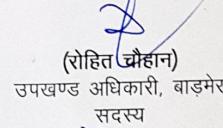 (रोहित चौहान)
उपखण्ड अधिकारी, बाड़मेर
सदस्य